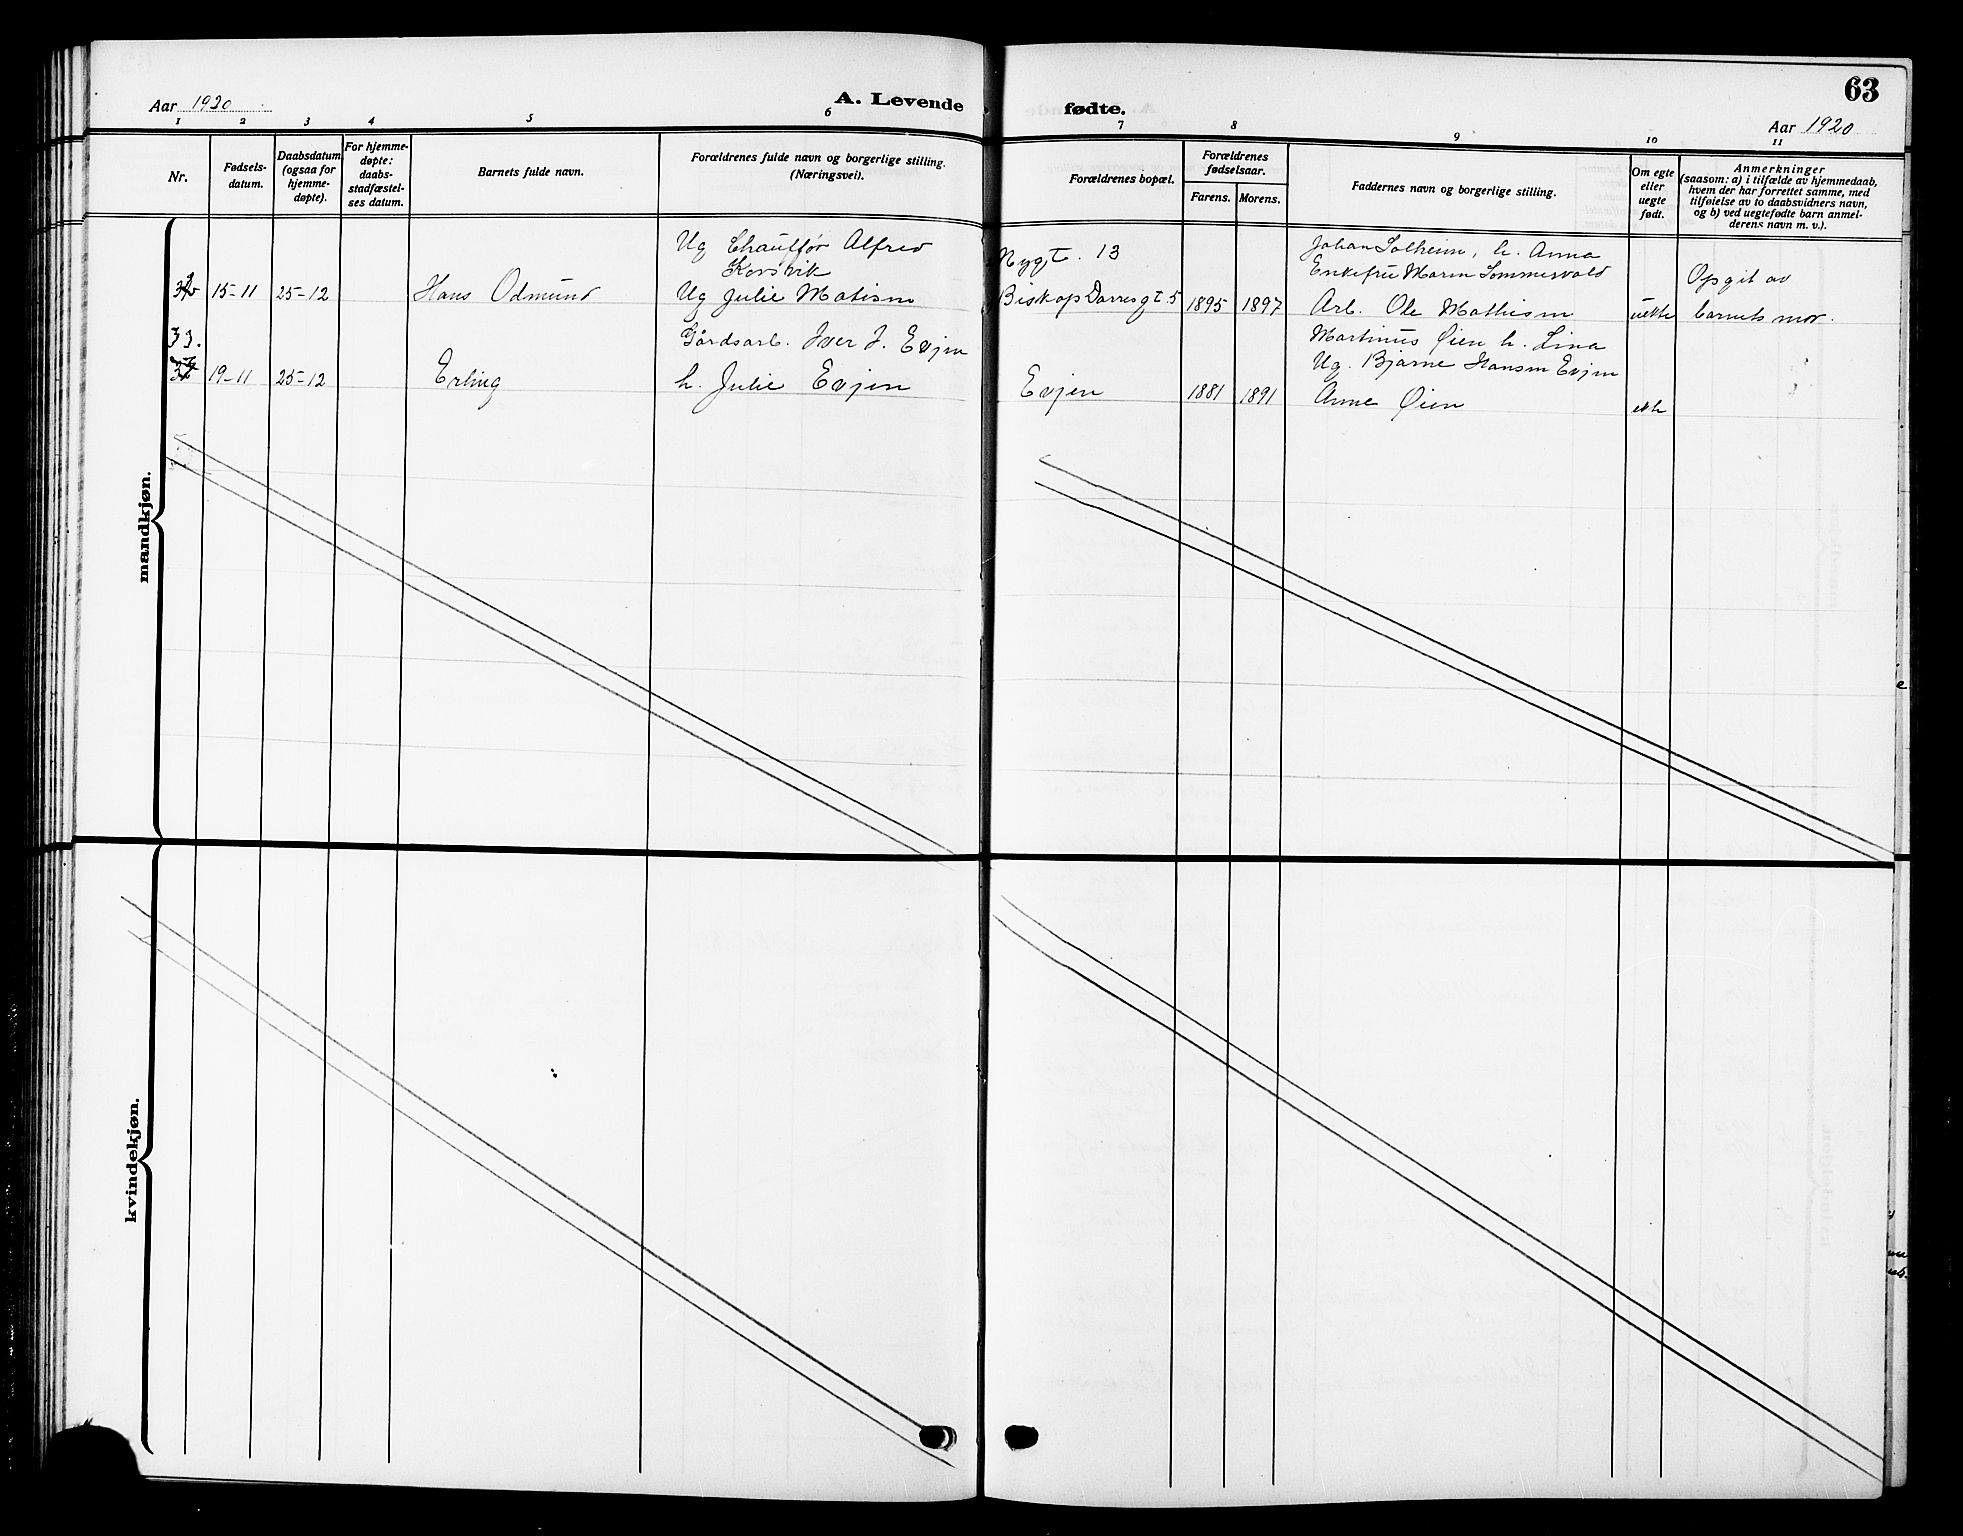 63
Aar 1920
A. Levende
fødte.
Aar 1920
1 2 3 4 5 6 7 8 9 10 11
Nr.
Fødsels-
datum.
Daabsdatum
(ogsaa for
hjemme-
døpte).
For hjemme-
døpte:
daabs-
stadfæstel-
ses datum.
Barnets fulde navn.
Forældrenes fulde navn og borgerlige stilling.
(Næringsvei).
Forældrenes bopæl.
Forældrenes
fødselsaar.
Farens. Morens.
Faddernes navn og borgerlige stilling.
Om egte
eller
uegte
født.
Anmerkninger
(saasom: a) i tilfælde av hjemmedaab,
hvem der har forrettet samme, med
tilføielse av to daabsvidners navn,
og b) ved uegtefødte barn anmel-
derens navn m. v.).
mandkjøn.
32 15-11 25-12
Hans Odmund
Ug Chauffør Alfred
Korsvik
Ug Julie Matisen
Nygt. 13
Biskop Darresgt. 5
1895 1897
Johan Solheim, h. Anna
Enkefru Maren Sommervold
Arb. Ole Mathisen
uekte
Opgit av
barnets mor.
33.
19-11 25-12
Erling
Gårdsarb. Iver J. Evjen
h. Julie Evjen
Evjen
1881 1891
Martinus Øien h. Lina
Ug. Bjarne Hansen Evjen
Anne Øien
ekte
kvindekjøn.